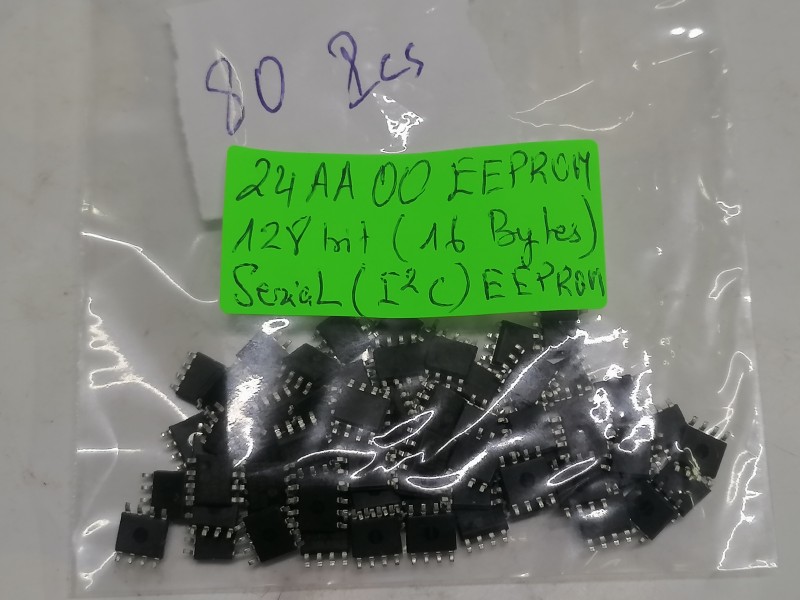 80 Pcs
24AA00 EEPROM
128 bit (16 Bytes)
Serial (I²C) EEPROM